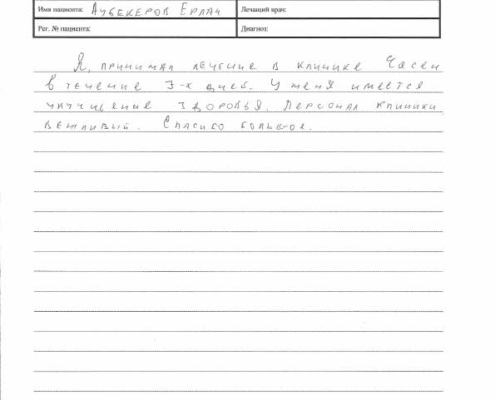 Имя пациента: Аубекеров Ерлан Лечащий врач:
Рег. № пациента: Диагноз:
Я, принимал лечение в клинике Чосен
в течение 3-х дней. У меня имеется
улучшение здоровья. Персонал клиники
вежливый. Спасибо большое.